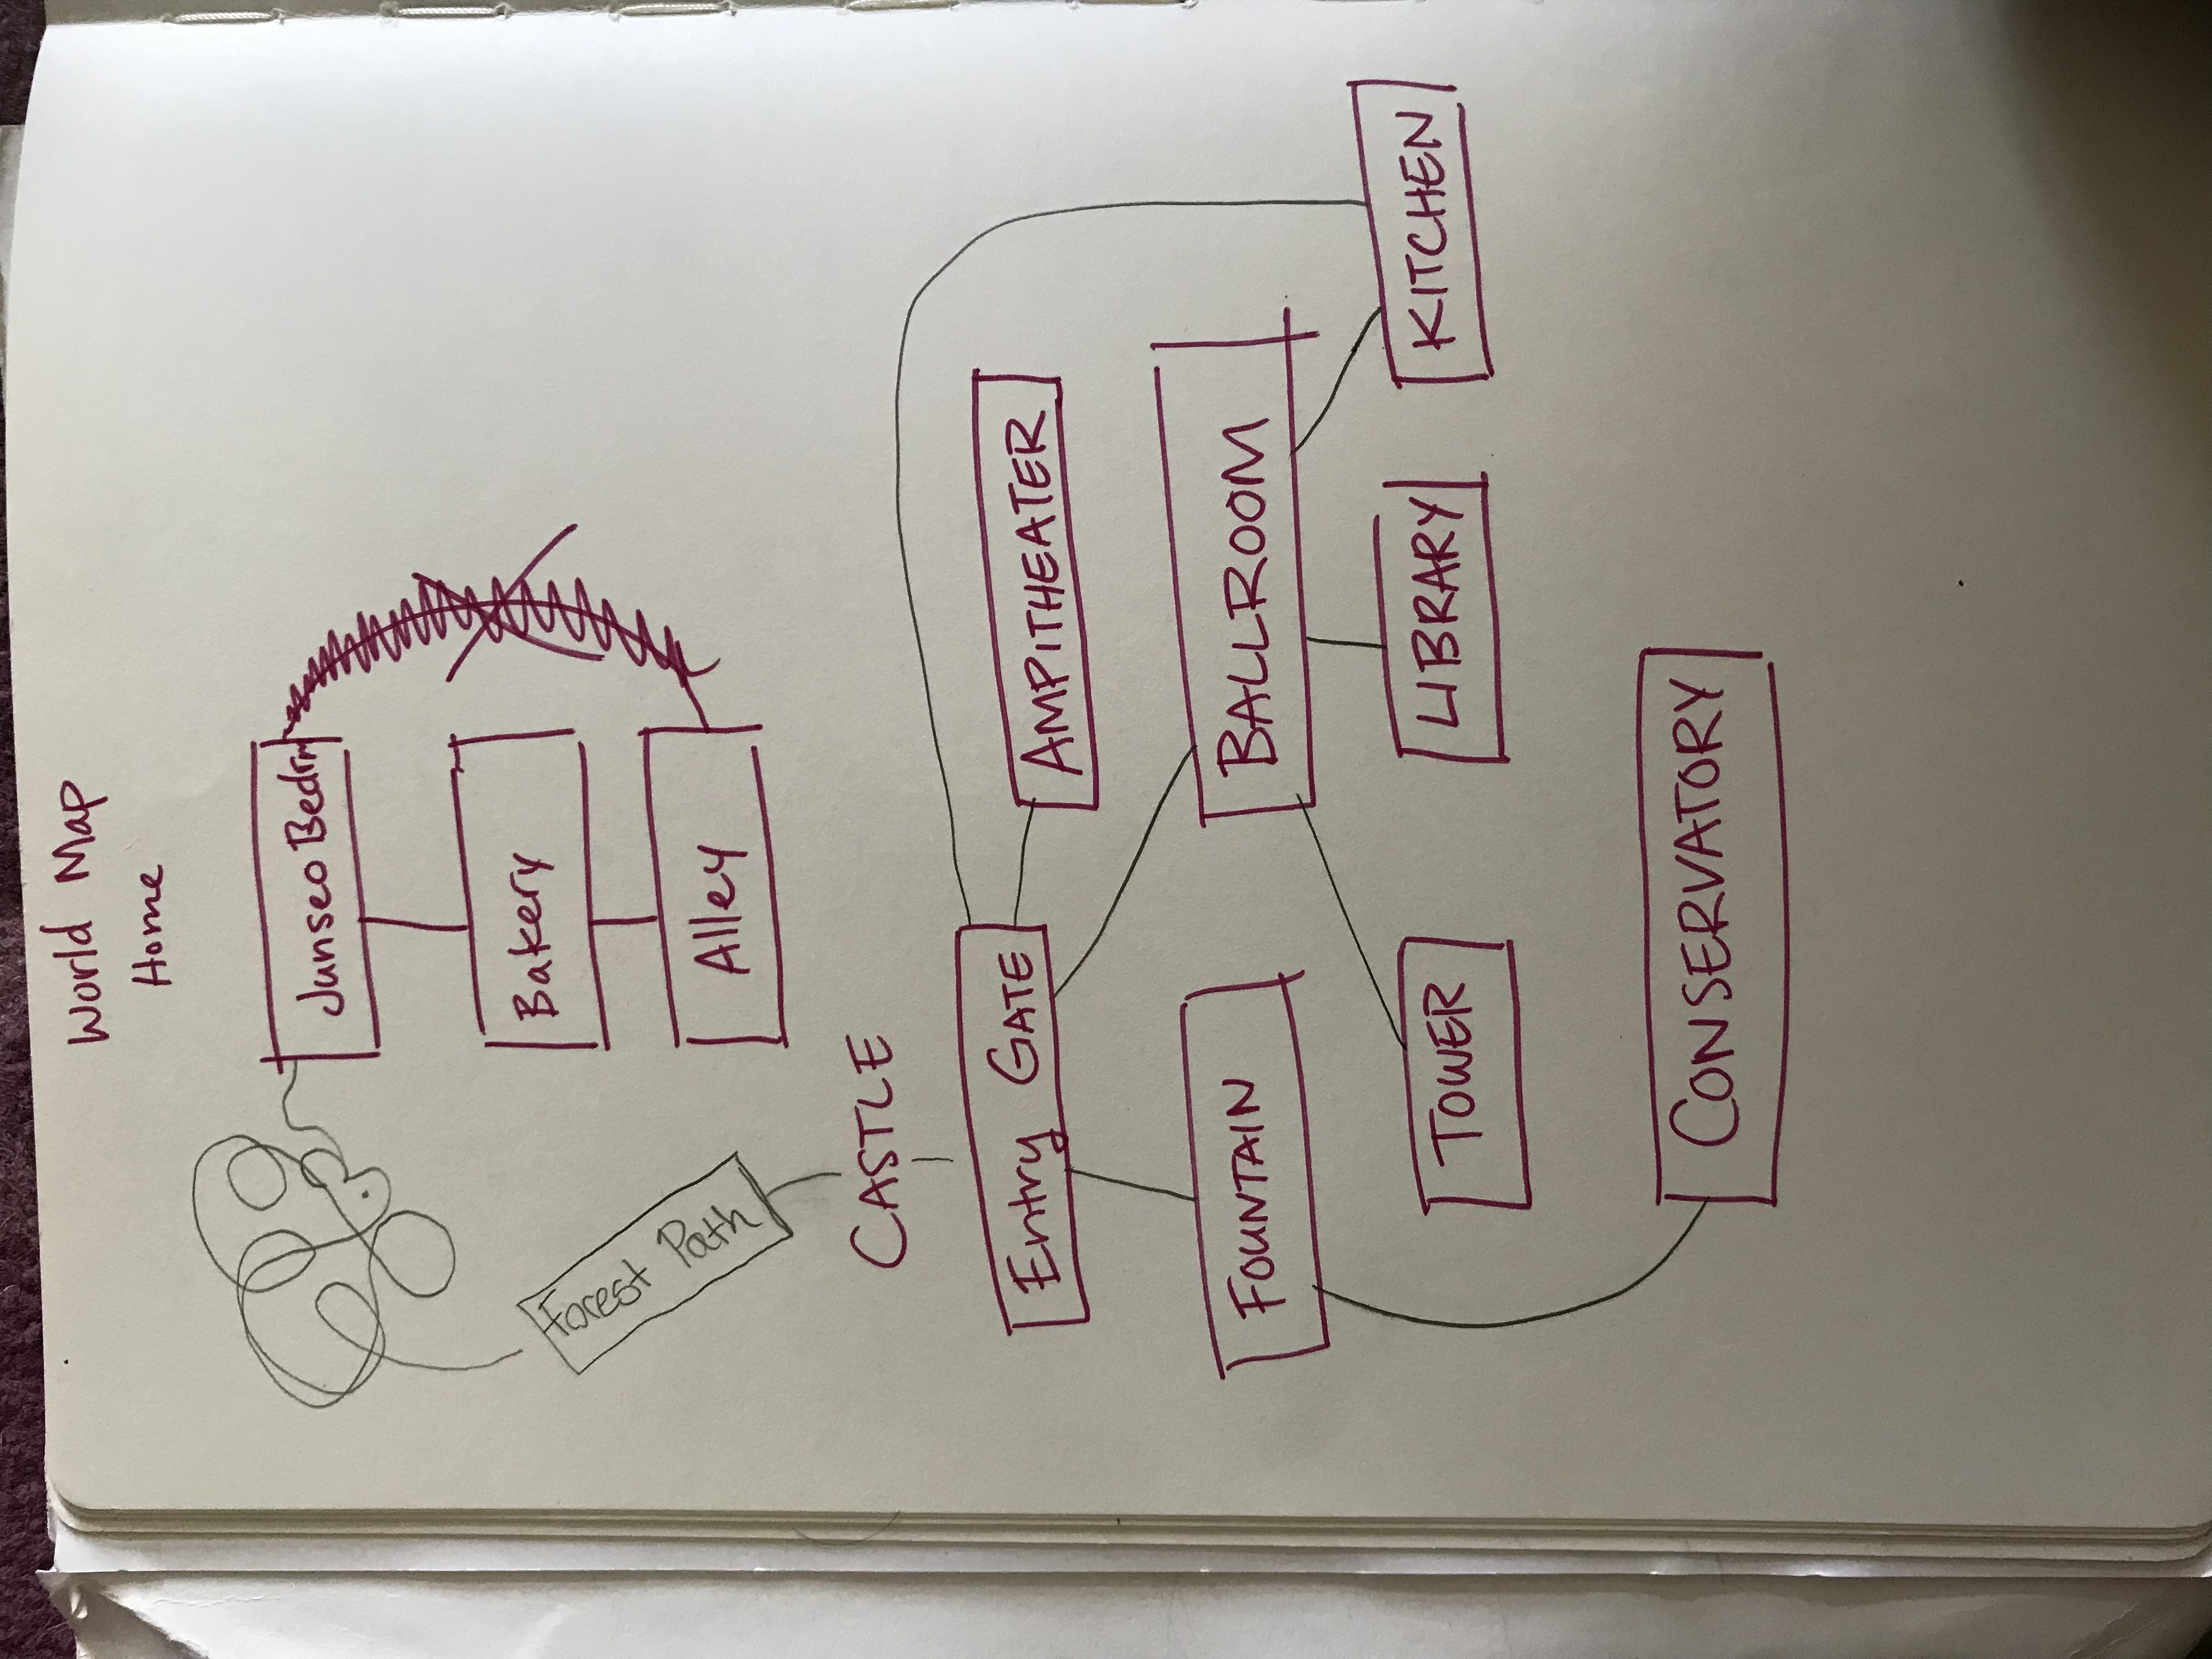 World Map
Home
Junseo Bedrm
Bakery
Forest Path
Alley
CASTLE
Entry GATE
AMPITHEATER
FOUNTAIN
BALLROOM
TOWER
LIBRARY
KITCHEN
CONSERVATORY